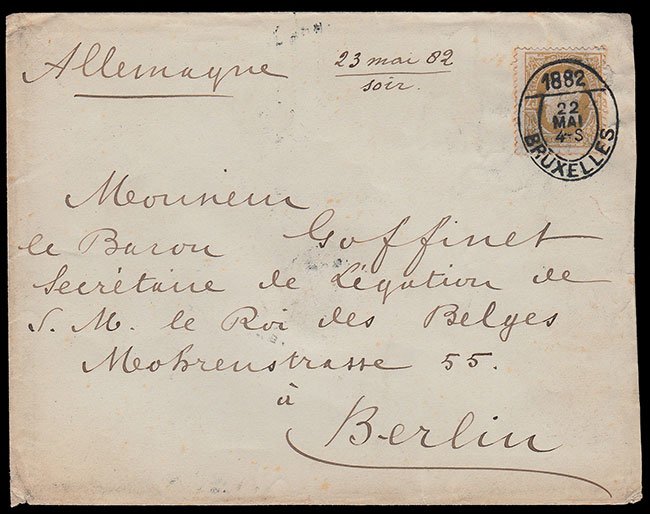 Allemagne
23 mai 82
soir.
1882
22
MAI
4-S
BRUXELLES
Monsieur
le Baron Goffinet
Secrétaire de Légation de
S. M. le Roi des Belges
Mohrenstrasse 55.
à
Berlin